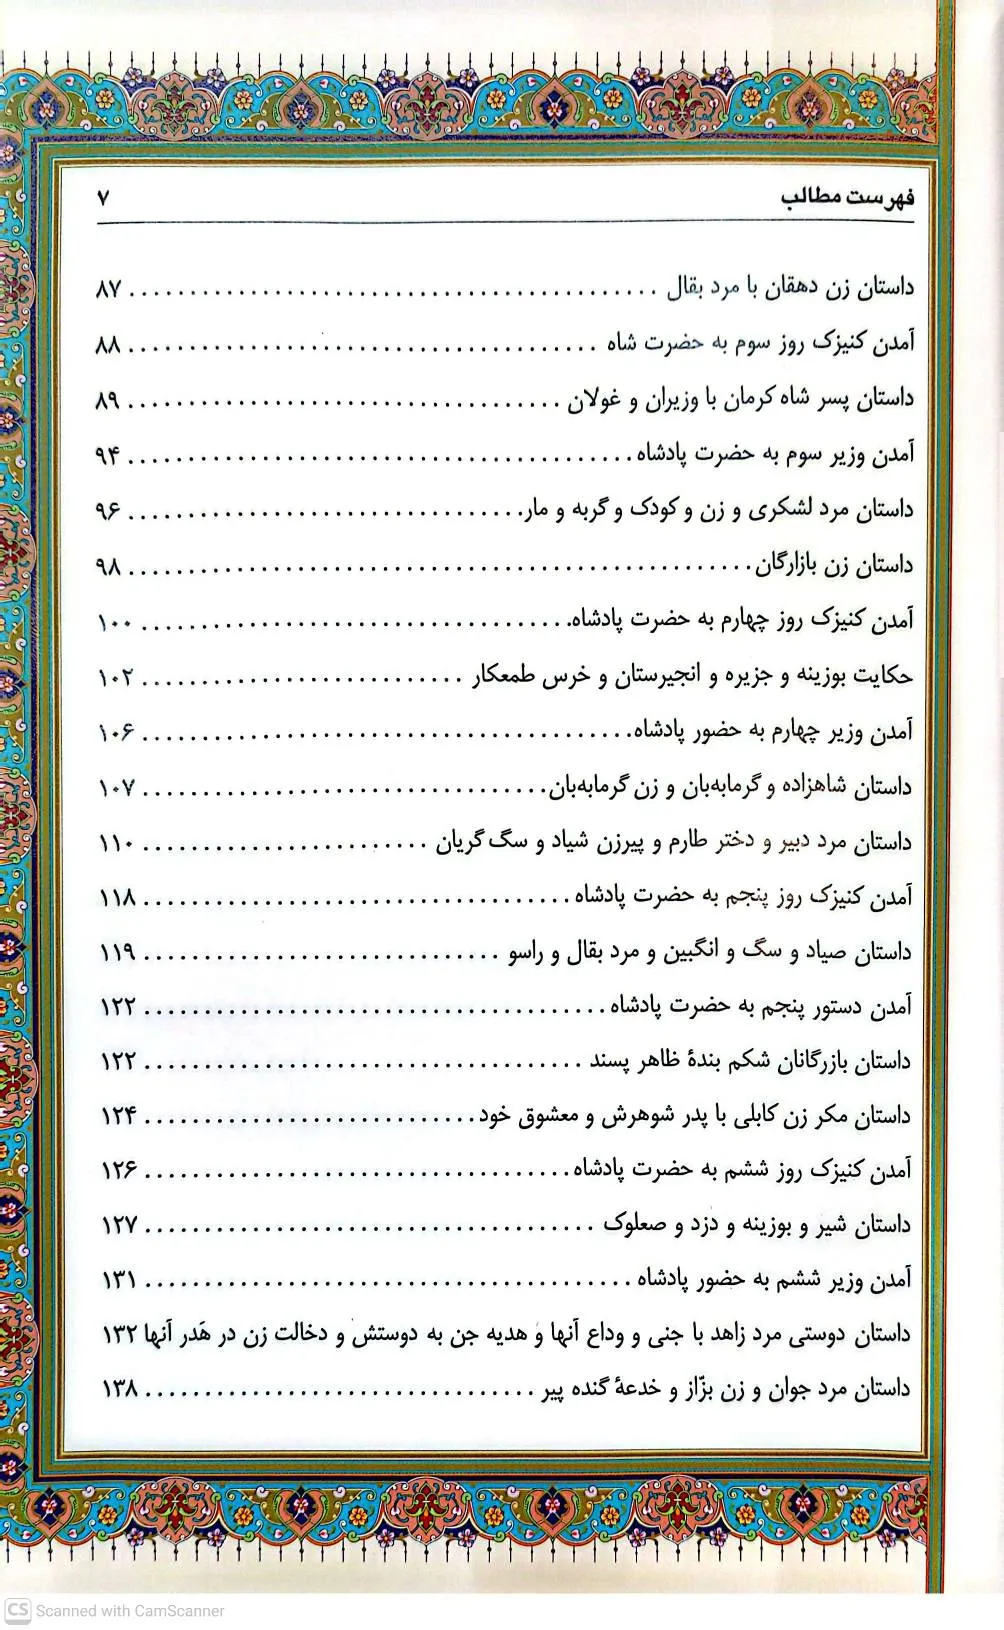 فهرست مطالب ۷
داستان زن دهقان با مرد بقال ........................................... ۸۷
آمدن کنیزک روز سوم به حضرت شاه ....................................... ۸۸
داستان پسر شاه کرمان با وزیران و غولان .................................... ۸۹
آمدن وزیر سوم به حضرت پادشاه.......................................... ۹۴
داستان مرد لشکری و زن و کودک و گربه و مار................................. ۹۶
داستان زن بازارگان.................................................... ۹۸
آمدن کنیزک روز چهارم به حضرت پادشاه.................................... ۱۰۰
حکایت بوزینه و جزیره و انجیرستان و خرس طمعکار ........................... ۱۰۲
آمدن وزیر چهارم به حضور پادشاه......................................... ۱۰۶
داستان شاهزاده و گرمابه‌بان و زن گرمابه‌بان.................................. ۱۰۷
داستان مرد دبیر و دختر طارم و پیرزن شیاد و سگ گریان ........................ ۱۱۰
آمدن کنیزک روز پنجم به حضرت پادشاه.................................... ۱۱۸
داستان صیاد و سگ و انگبین و مرد بقال و راسو .............................. ۱۱۹
آمدن دستور پنجم به حضرت پادشاه....................................... ۱۲۲
داستان بازرگانان شکم بندهٔ ظاهر پسند ..................................... ۱۲۲
داستان مکر زن کابلی با پدر شوهرش و معشوق خود............................ ۱۲۴
آمدن کنیزک روز ششم به حضرت پادشاه.................................... ۱۲۶
داستان شیر و بوزینه و دزد و صعلوک ...................................... ۱۲۷
آمدن وزیر ششم به حضور پادشاه ......................................... ۱۳۱
داستان دوستی مرد زاهد با جنی و وداع آنها و هدیه جن به دوستش و دخالت زن در هَدر آنها ۱۳۲
داستان مرد جوان و زن بزّاز و خدعهٔ گنده پیر ................................. ۱۳۸
CS Scanned with CamScanner